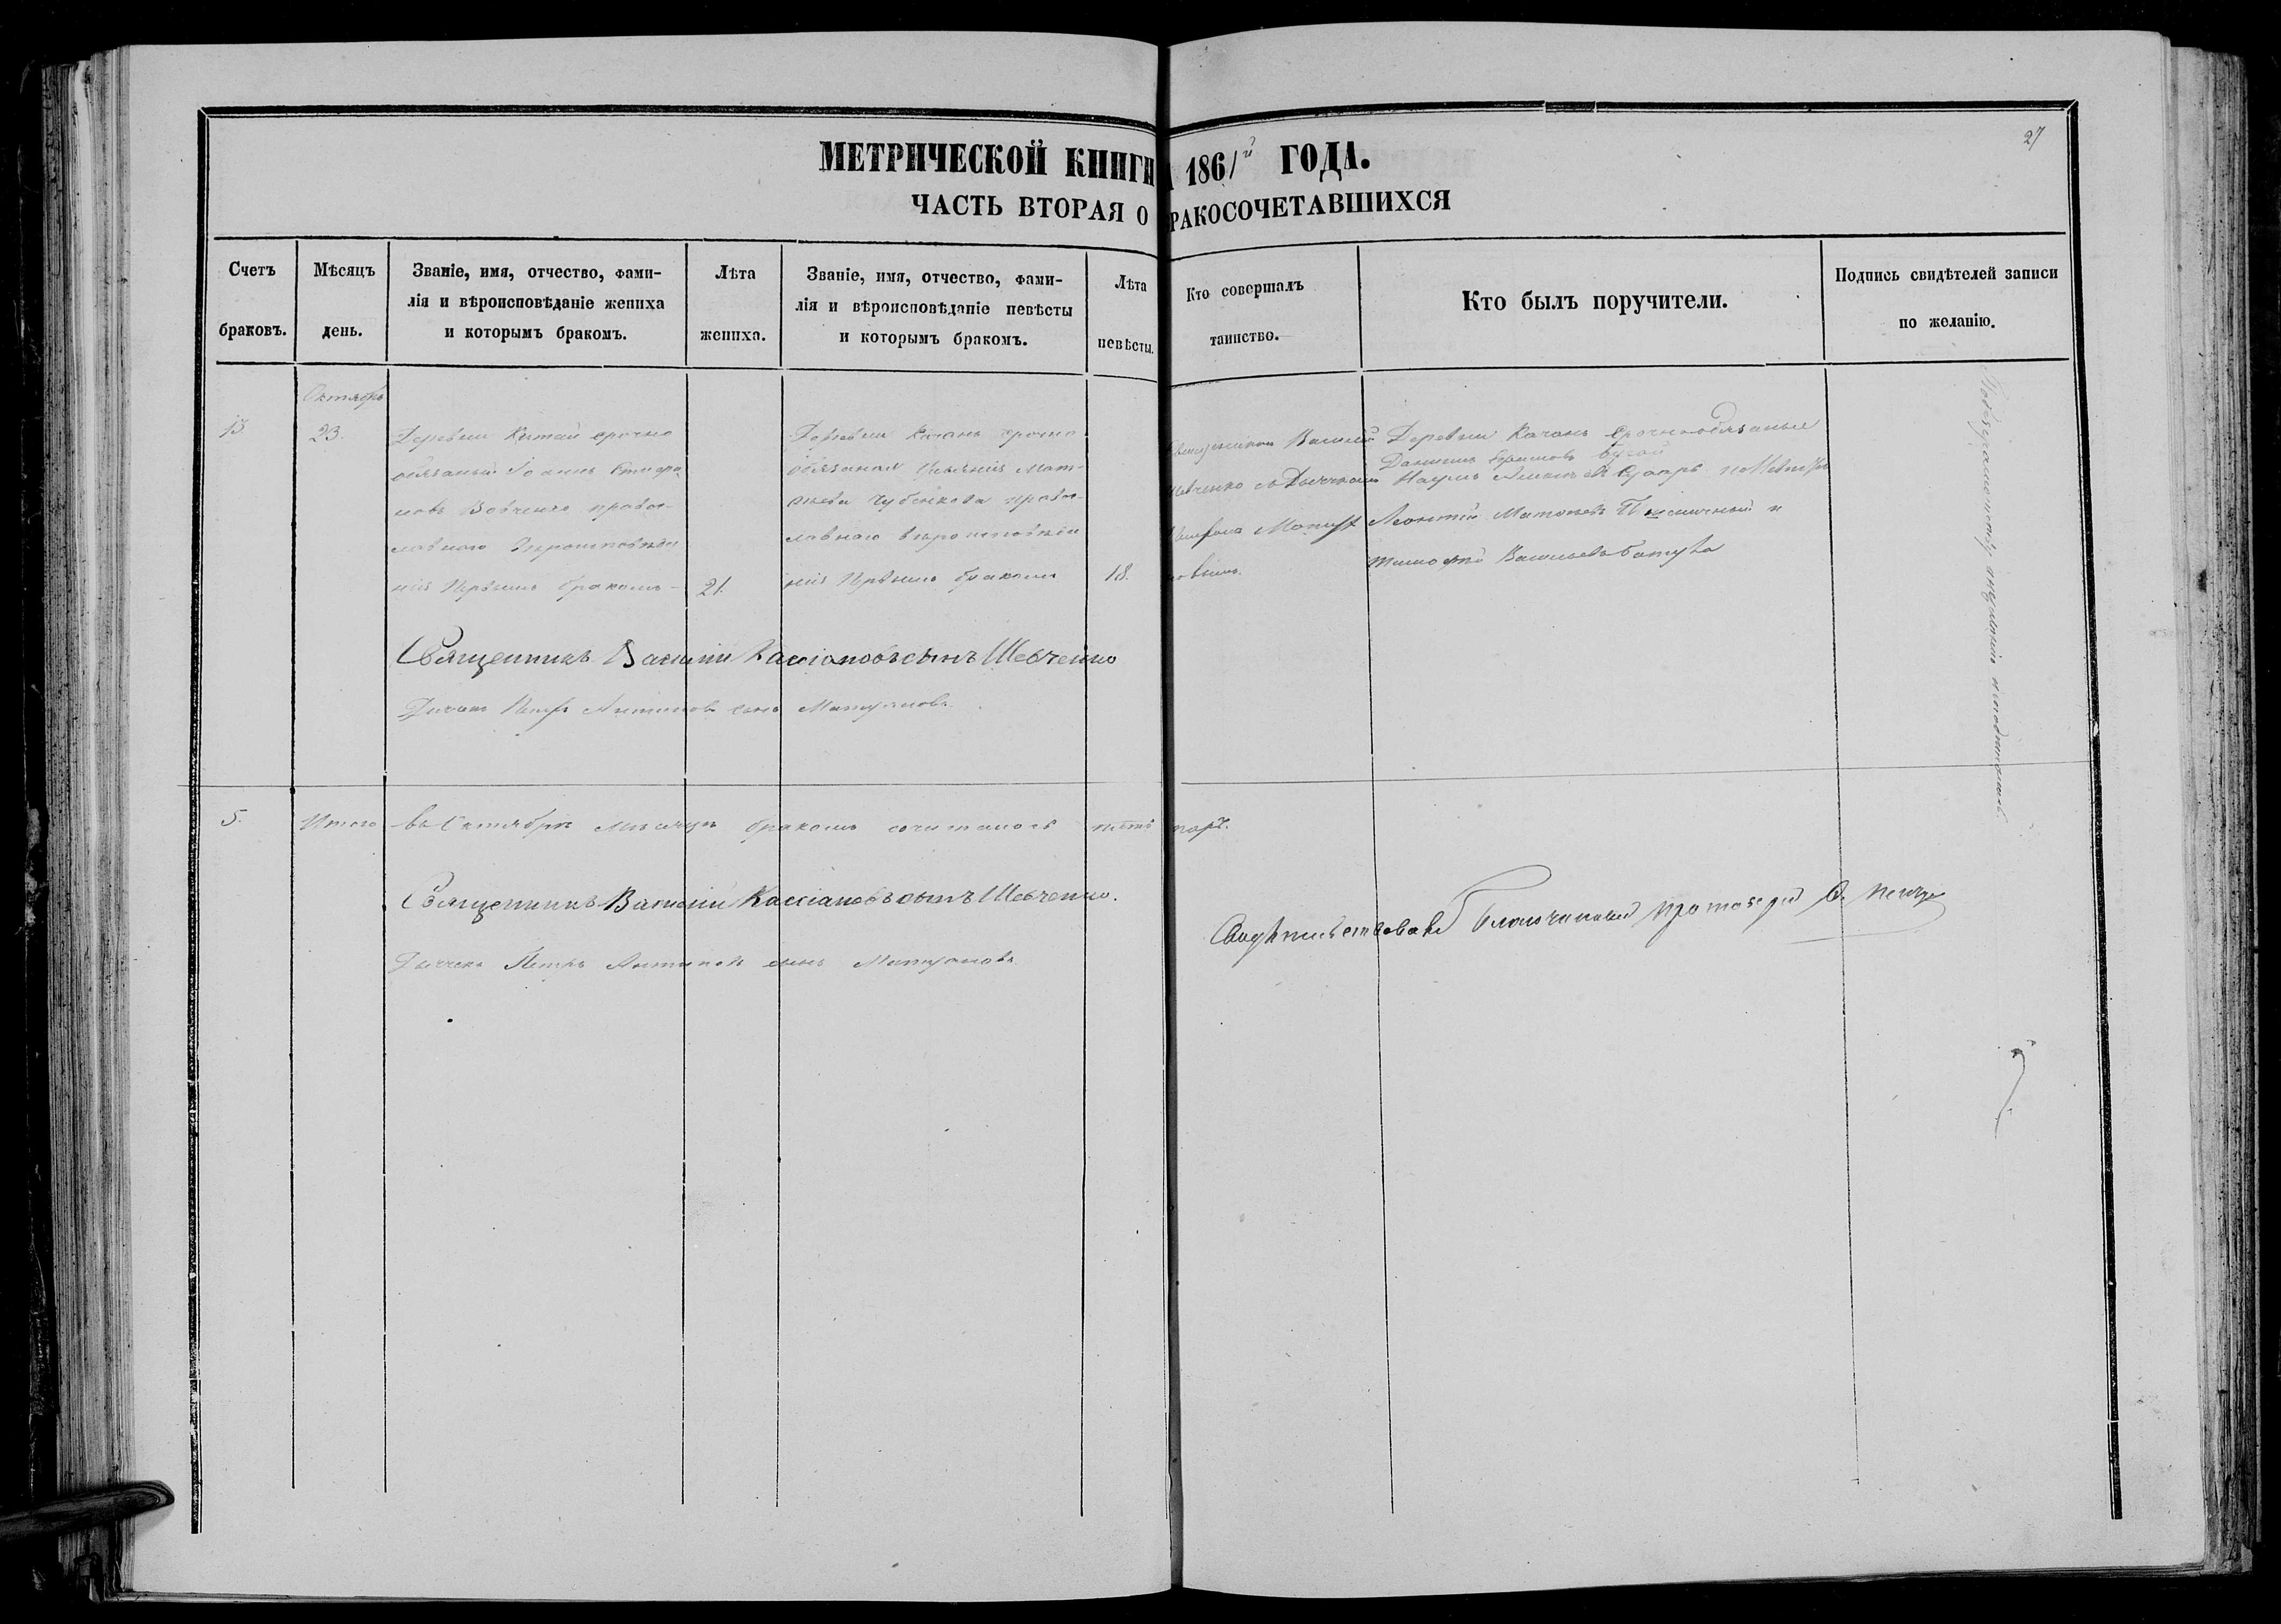 27
МЕТРИЧЕСКОЙ КНИГИ 1861й ГОДА.
ЧАСТЬ ВТОРАЯ О БРАКОСОЧЕТАВШИХСЯ
Счетъ
браковъ.
Мѣсяцъ
день.
Званіе, имя, отчество, фами-
лія и вѣроисповѣданіе жениха
и которымъ бракомъ.
Лѣта
жениха.
Званіе, имя, отчество, фами-
лія и вѣроисповѣданіе невѣсты
и которымъ бракомъ.
Лѣта
невѣсты.
Кто совершалъ
таинство.
Кто былъ поручители.
Подпись свидѣтелей записи
по желанію.
Октябрь
13.
23.
Деревни Китай срочно
обязаный Іоаннъ
новъ Вовченко право-
славнаго вѣроисповѣда
нія Первымъ бракомъ
21.
Деревни Качанъ срочно
обязаная Мат-
ѳѣева Чубенкова право-
славнаго вѣроисповѣда
нія Первымъ бракомъ
18.
Священникъ Василій
Шевченко съ Дьячкомъ
новымъ.
Деревни Качанъ срочнообязаные
Наумъ
Леонтій Матвѣевъ Пшеничный и
Тимофѣй Васильевъ
Священникъ Василій Кассіановъ сынъ Шевченко
Дьячокъ Петръ Антиповъ сынъ
5.
Итого въ Октябрѣ мѣсяцѣ бракомъ сочиталось пять паръ.
Священникъ Василій Кассіановъ сынъ Шевченко.
Дьячекъ Петръ Антиповъ сынъ
Свидѣтельствовалъ Благочинный Протоіерей